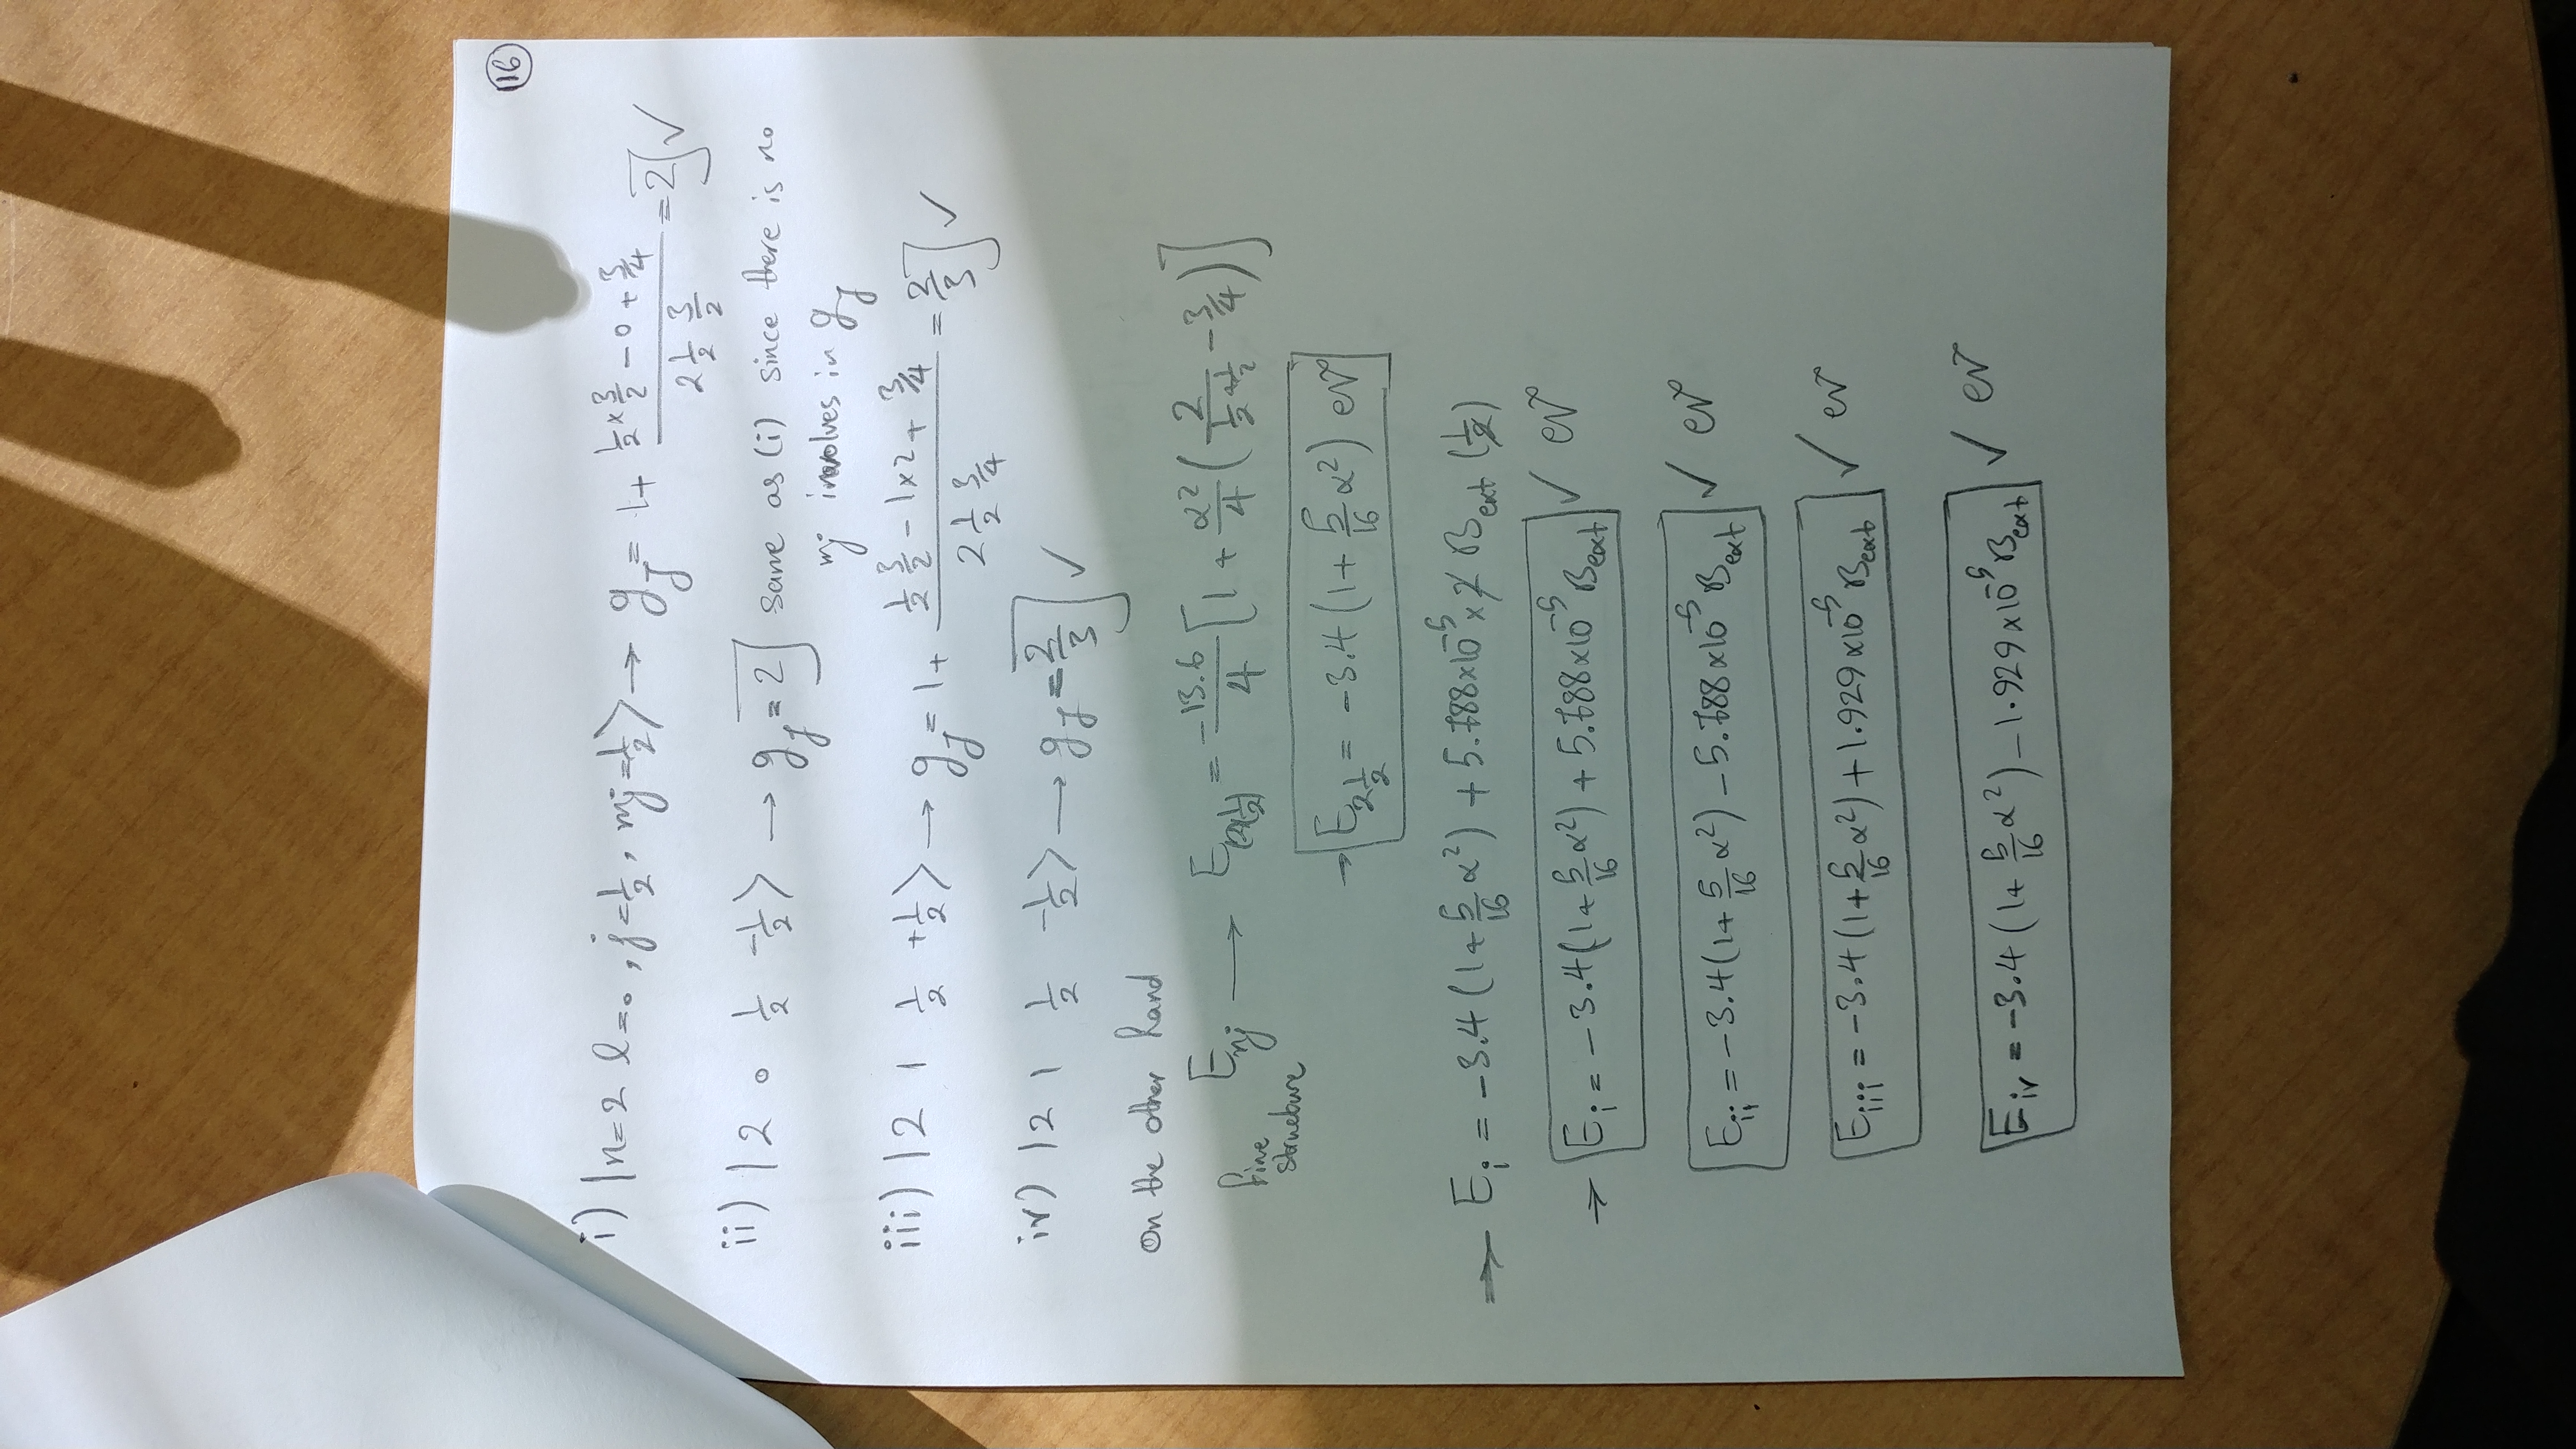 16
i) |n=2 l=0, j=1/2, mj=1/2⟩ → g_J = 1 + (1/2 × 3/2 - 0 + 3/4) / (2 1/2 3/2) = 2 ✓
ii) |2 0 1/2 -1/2⟩ → g_J = 2 same as (i) since there is no
mj involves in g_J
iii) |2 1 1/2 +1/2⟩ → g_J = 1 + (1/2 3/2 - 1×2 + 3/4) / (2 1/2 3/4) = 2/3 ✓
iv) |2 1 1/2 -1/2⟩ → g_J = 2/3 ✓
on the other hand
fine structure E_nj → E_(2 1/2) = -13.6/4 [1 + α²/4 (2/(1/2 + 1/2) - 3/4)]
→ E_2 1/2 = -3.4 (1 + 5/16 α²) eV
⇒ E_i = -3.4 (1 + 5/16 α²) + 5.788×10^-5 × 2 B_ext (1/2)
→ E_i = -3.4 (1 + 5/16 α²) + 5.788×10^-5 B_ext ✓ eV
E_ii = -3.4 (1 + 5/16 α²) - 5.788×10^-5 B_ext ✓ eV
E_iii = -3.4 (1 + 5/16 α²) + 1.929×10^-5 B_ext ✓ eV
E_iv = -3.4 (1 + 5/16 α²) - 1.929×10^-5 B_ext ✓ eV